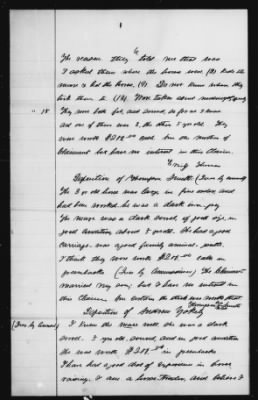 6
The reason they told me that was
I asked them where the horses were (8) Rode the
mare & led the horse. (9) Do not know where they
took them to (10) Were taken about midnight
They were both fat, and sound, so far as I know
one of them was 2, the other 5 yrs old. They
"15
were worth $200.00 each. Am the mother of
Claimant but have no interest in this Claim.
Emily
Deposition of Thompson Smith (Inv by consel)
The 3 yr old horse was large in fine order, and
had been worked. he was a dark iron grey
The mare was a dark sorrel, of good size, in
good condition about 5 yrs old. She had a good
carriage. was a good family animal, gentle.
I think they were worth $200.00 each in
greenbacks (Inv by Commissioner) The Claimant
married my sister; but I have no interest in
this Claim. Am certain the stock was worth that
Thompson Smith
Deposition of Andrew
(Inv by Consel)
I knew the mare well she was a dark
sorrel. 5 yrs old, sound, and in good condition
She was worth $200.00 in greenbacks
I have had a good deal of experience in horse
raising. I am a horse trader, and believe I